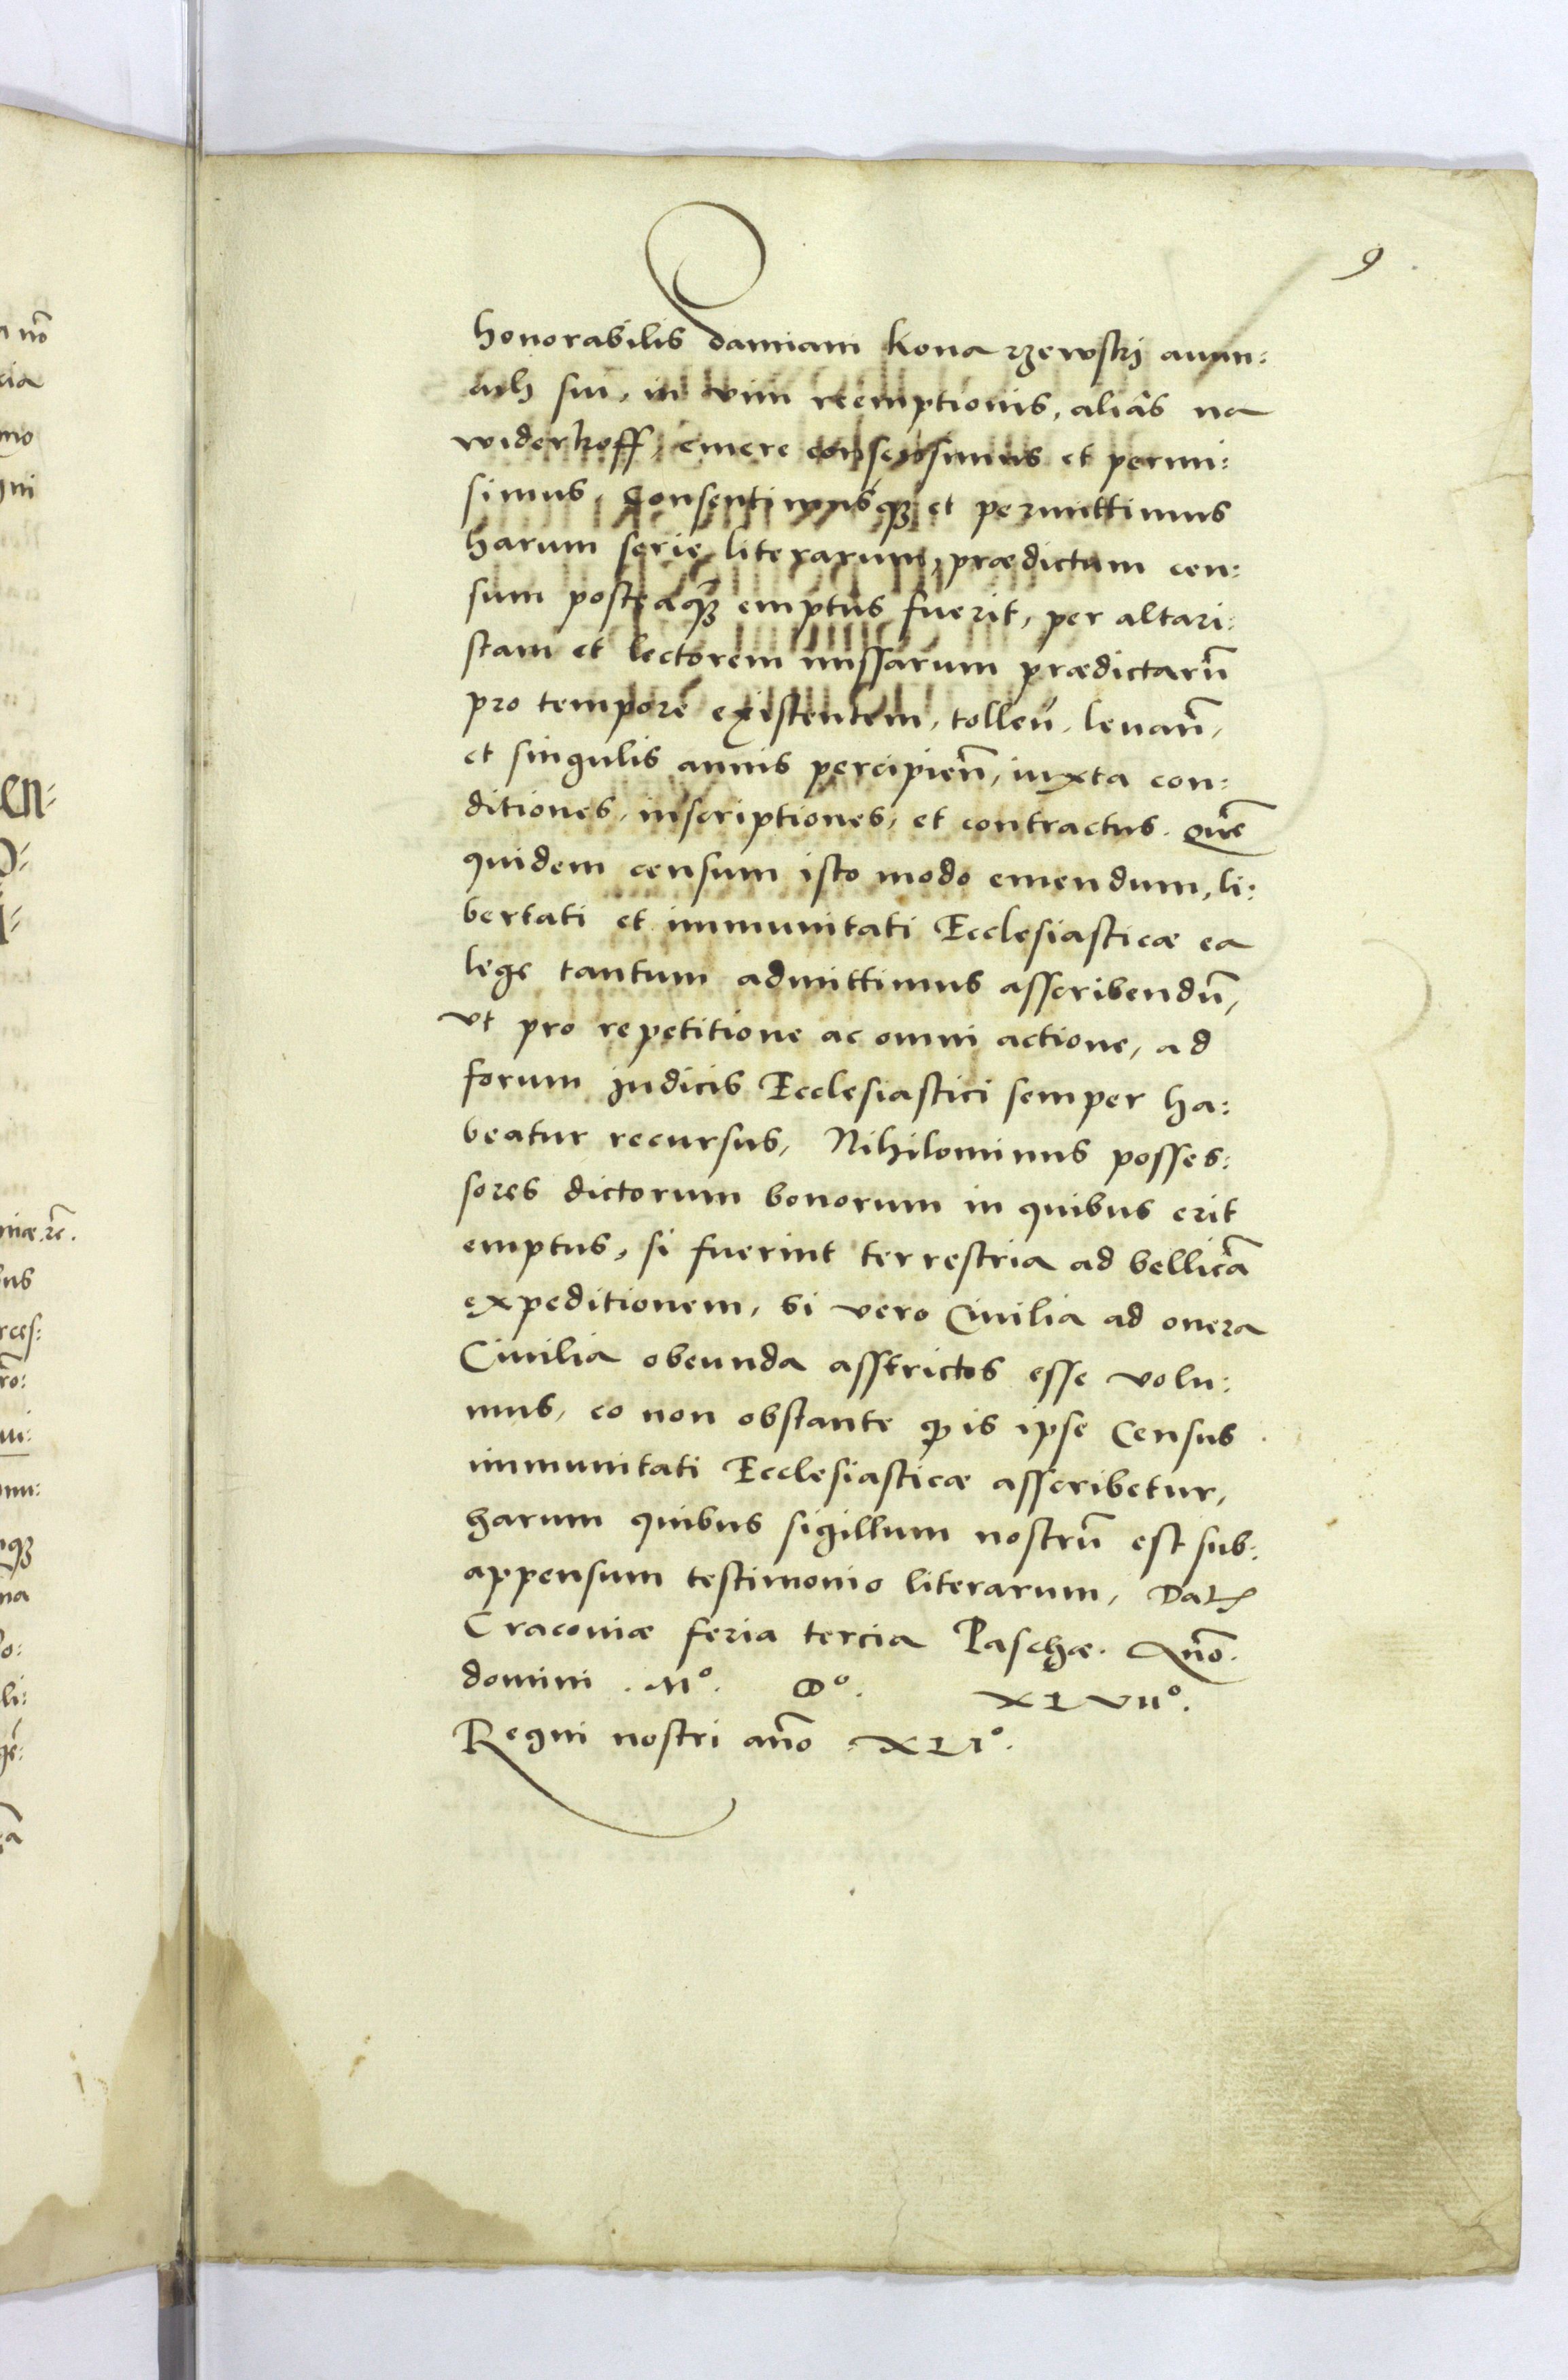 9
honorabilis Damiani Konarzewskj auun:
culi sui, in vim reemptionis, aliàs na
widerkoff, emere consensimus et permi:
simus, Consentimusq₃ et permittimus
harum serie literarum, prædictum cen:
sum posteaq₃ emptus fuerit, per altari:
stam et lectorem missarum prædictarū
pro tempore existentem, tolleñ. leuañ,
et singulis annis percipieñ, iuxta con:
ditiones, inscriptiones, et contractus. Quē
quidem censum isto modo emendum, li:
bertati et immunitati Ecclesiasticæ ea
lege tantum admittimus asscribendū,
vt pro repetitione ac omni actione, ad
forum judicis Ecclesiastici semper ha:
beatur recursus, Nihilominus posses:
sores dictorum bonorum in quibus erit
emptus, si fuerint terrestria ad bellicā
expeditionem, si vero Ciuilia ad onera
Ciuilia obeunda asstrictos esse volu:
mus, eo non obstante ꝙ is ipse Census
immunitati Ecclesiasticæ asscribetur,
harum quibus sigillum nostrū est sub:
appensum testimonio literarum, Datꝭ
Cracouiæ feria tercia Paschæ. Anō.
domini . Mº. Dº. XLVIIº.
Regni nostri anō XLIº.